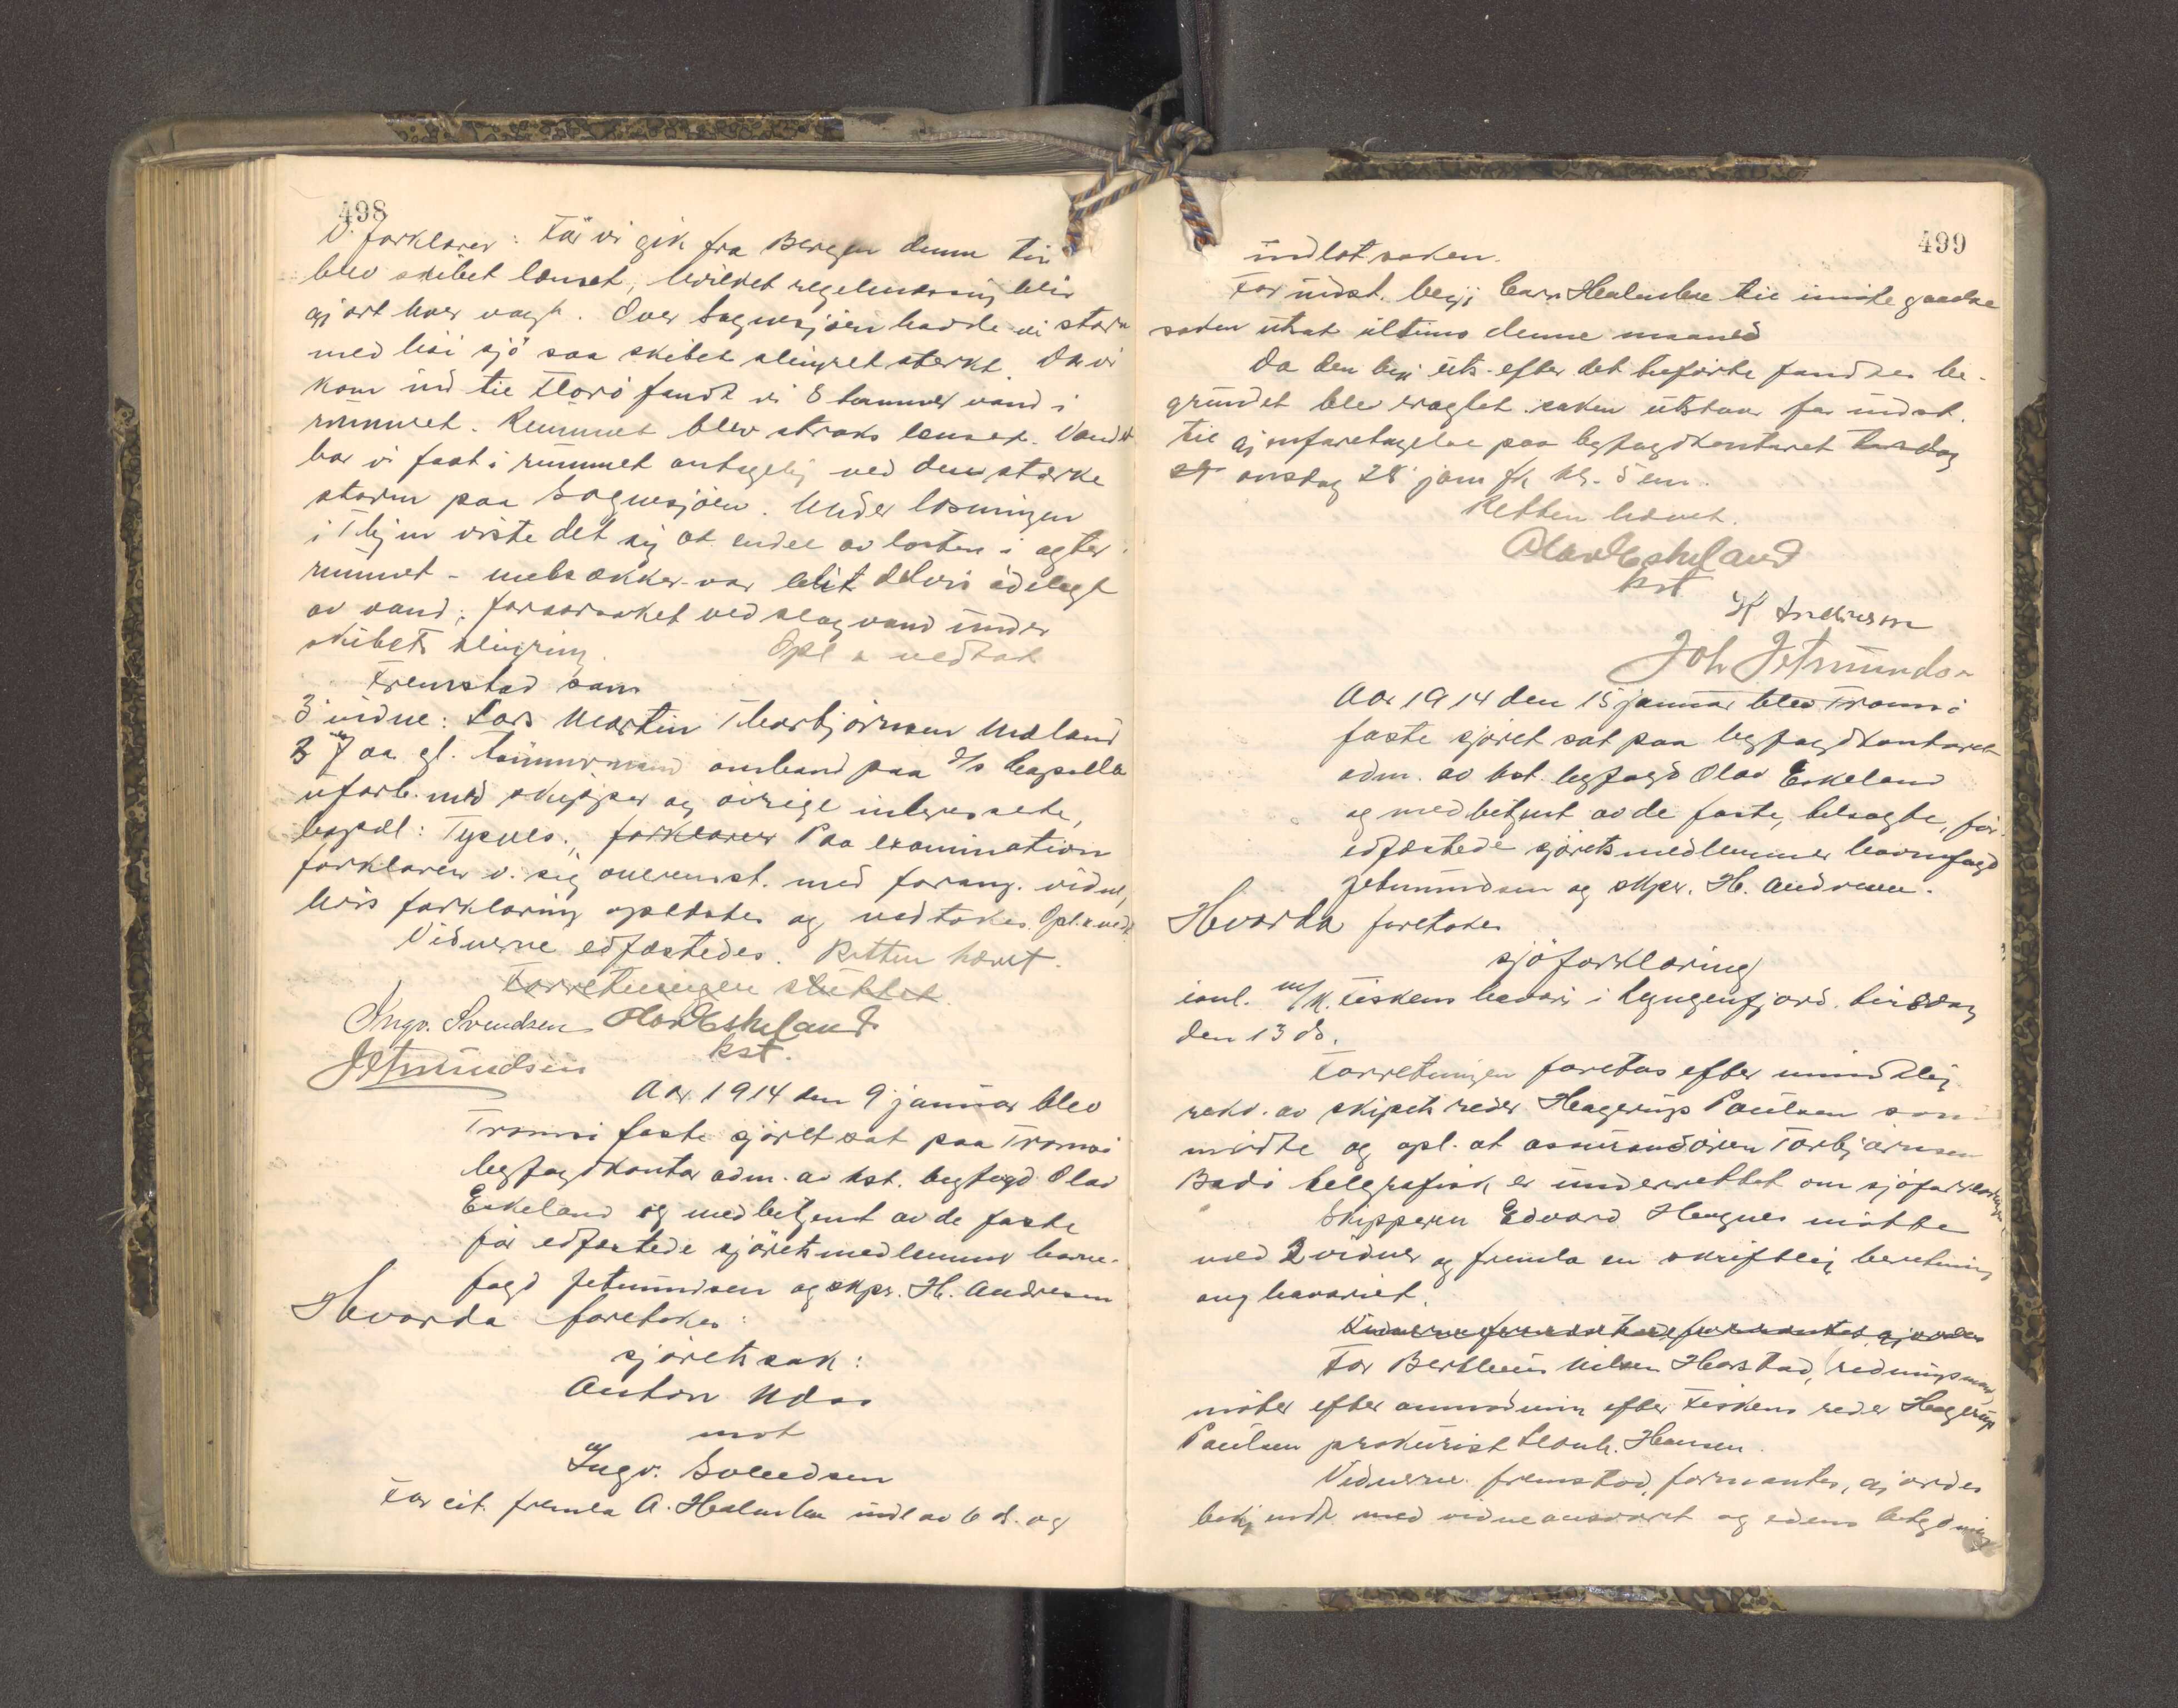 498
V. forklarer: Før vi gik fra Bergen denne tur
blev skibet lænset, hvilket regelmæssig blir
gjort hver vagt. Over Sognesjøen hadde vi storm
med høi sjø saa skibet slingret sterkt. Da vi
kom ind til Florø fandt vi 8 tommer vand i
rummet. Rummet blev straks lænset. Vandet
har vi faat i rummet antagelig ved den stærke
storm paa Sognesjøen. Under losningen
i viste det sig at endel av lasten i agter-
rummet - melsækker - var blit delvis ødelagt
av vand; foraarsaket ved slagvand under
skibets slingring. Opl & vedtat
Fremstod som
3 vidne: Lars Martin Thorbjørnsen Mæland
37 aa gl. tømmermand ombord paa d/s Capella
uforb. med skipper og øvrige interessete,
bopæl: Tysnes. forklarer Paa examination
forklarer v. sig overenst. med foreg. vidne,
hvis forklaring oplæstes og vedtokes. Opl. & vedt.
Vidnerne edfæstedes. Retten hævet.
Forretningen sluttet.
Ingv. Svendsen Olav Eskeland
kst.
Jetmundsen
Aar 1914 den 9 januar blev
Tromsø faste sjøret sat paa Tromsø
byfogdkontor adm. av kst. byfogd Olav
Eskeland og med betjent av de faste
før edfæstede sjøretsmedlemmer havne-
fogd Jetmundsen og skpr. H. Andresen
Hvorda foretokes:
sjøretssak:
Anton
mot
Ingv. Svendsen
For cit. fremla A. Holmboe indl av 6 ds. og
499
indlot saken.
For indst. begj. Holmboe til imøtegaaelse
saken utsat ultimo denne maaned
Da den begj uts. efter det anførte fandtes be-
grundet blev eragtet saken utstaar for indst.
til gjenforetagelse paa byfogdkontoret torsdag
onsdag 28 jan fk kl. 5 em.
Retten hævet.
Olav Eskeland
kst
H Andresen
Joh Jetmundsen
Aar 1914 den 15 januar blev Tromsø
faste sjøret sat paa byfogdkontoret
adm. av kst. byfogd Olav Eskeland
og med betjent av de faste, tilsagte, før
edfæstede sjøretsmedlemmer havnefogd
Jetmundsen og skpr. H. Andresen.
Hvorda foretokes
sjøforklaring
ianl. m/k. Fiskens havari i Lyngenfjord tirsdag
den 13 ds.
Forretningen foretas efter mundtlig
rekv. av skipets reder Hagerup Paulsen som
møtte og opl. at assurandøren Torbjørnsen
Bodø telegrafisk er underrettet om sjøforklaringen
Skipperen Edvard Hagnes møtte
med 2 vidner og fremla en skriftlig beretning
ang havariet.
Vidnerne fremstod, formantes, gjordes
For Nilsen Harstad, redningsmand,
møter efter anmodning efter Fiskens reder Hagerup
Paulsen prokurist Hansen.
Vidnerne fremstod, formantes, gjordes
bekjendt med vidneansvaret og edens betydning